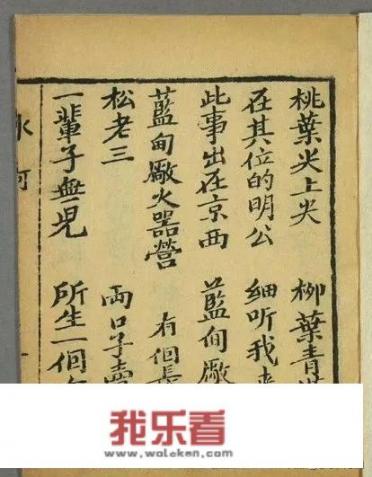 桃葉尖上尖 柳葉青
在其位的明公 細听我來
此事出在京西 藍甸廠
藍甸廠火器營 有個
松老三 両口子賣
一輩子無兒 所生一個
水河
一
我乐看
www.woleken.com